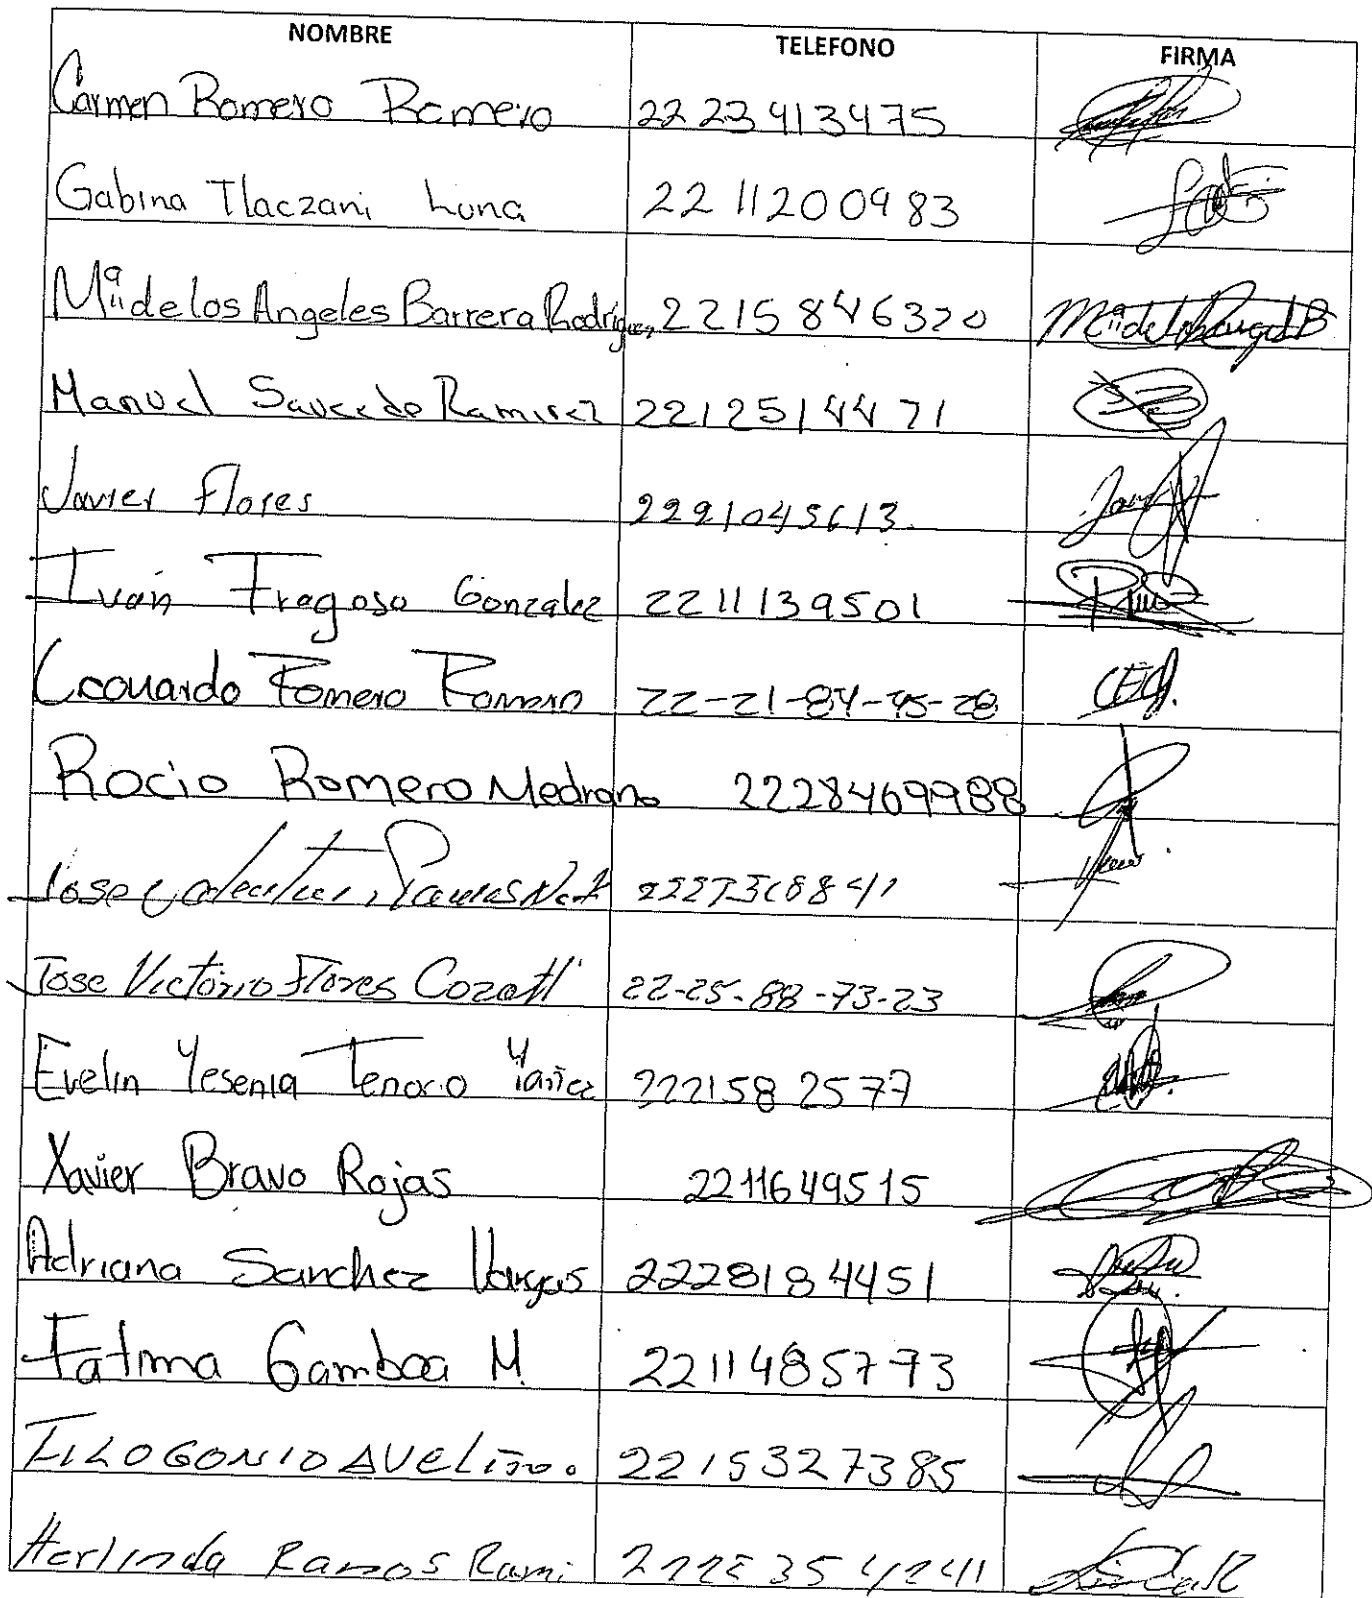 NOMBRE TELEFONO FIRMA
Carmen Romero Romero 22 23 413475
Gabina Tlaczani Luna 22 11200983
Mª de los Angeles Barrera Rodriguez 2215846320
Manuel Saucedo Ramirez 2212514471
Javier Flores 2291045613.
Ivan Fragoso Gonzalez 2211139501
Leonardo Romero Romero 22-21-84-45-28
Rocio Romero Medrano 2228469988
Jose
Jose Victorio Flores Cozatl 22-25-88-73-23
Evelin Yesenia Tenorio Yañez 222158 2577
Xavier Bravo Rojas 2211649515
Adriana Sanchez Vargas 2228184451
Fatima Gamboa M. 2211485773
FILOGONIO AVELINO. 2215327385
Herlinda Ramos Rami